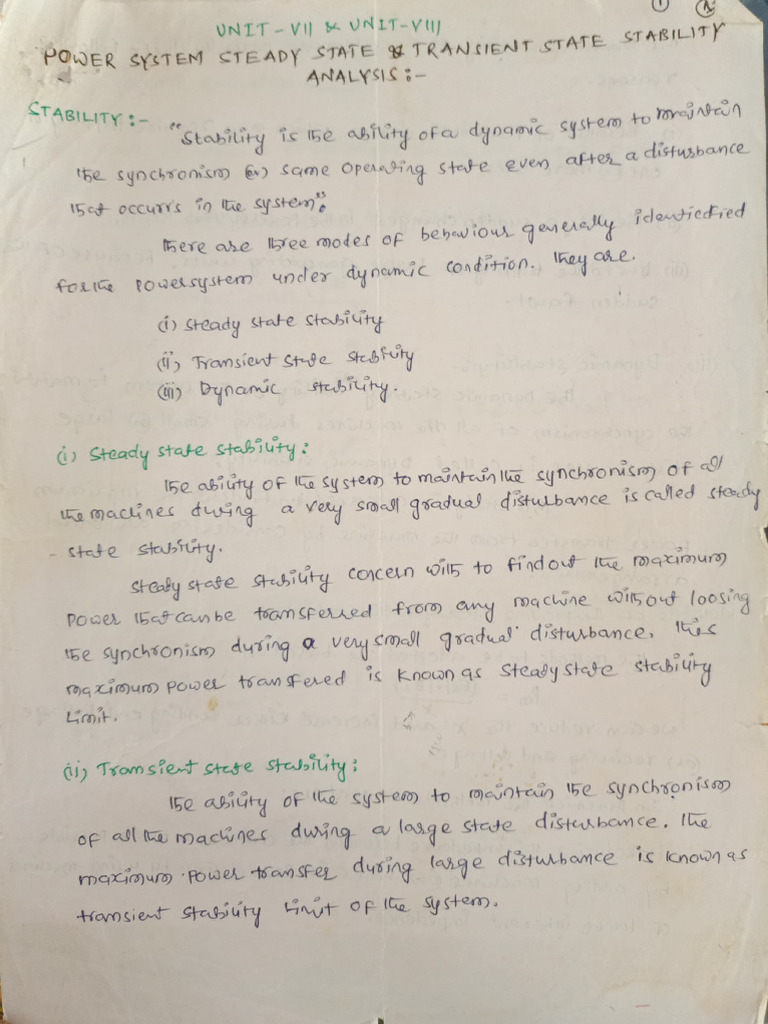 1
UNIT-VII & UNIT-VIII
POWER SYSTEM STEADY STATE & TRANSIENT STATE STABILITY
ANALYSIS:-
STABILITY:-
"Stability is the ability of a dynamic system to maintain
the synchronism (or) same operating state even after a disturbance
that occurrs in the system".
There are three modes of behaviour generally identicified
for the power system under dynamic condition. They are.
(i) Steady state stability
(ii) Transient state stability
(iii) Dynamic stability.
(i) Steady state stability:
The ability of the system to maintain the synchronism of all
the machines during a very small gradual disturbance is called steady
- state stability.
Steady state stability concern with to find out the maximum
power that can be transferred from any machine without loosing
the synchronism during a very small gradual disturbance. This
maximum power transfered is known as steady state stability
limit.
(ii) Transient state stability:
The ability of the system to maintain the synchronism
of all the machines during a large state disturbance. The
maximum power transfer during large disturbance is known as
transient stability limit of the system.